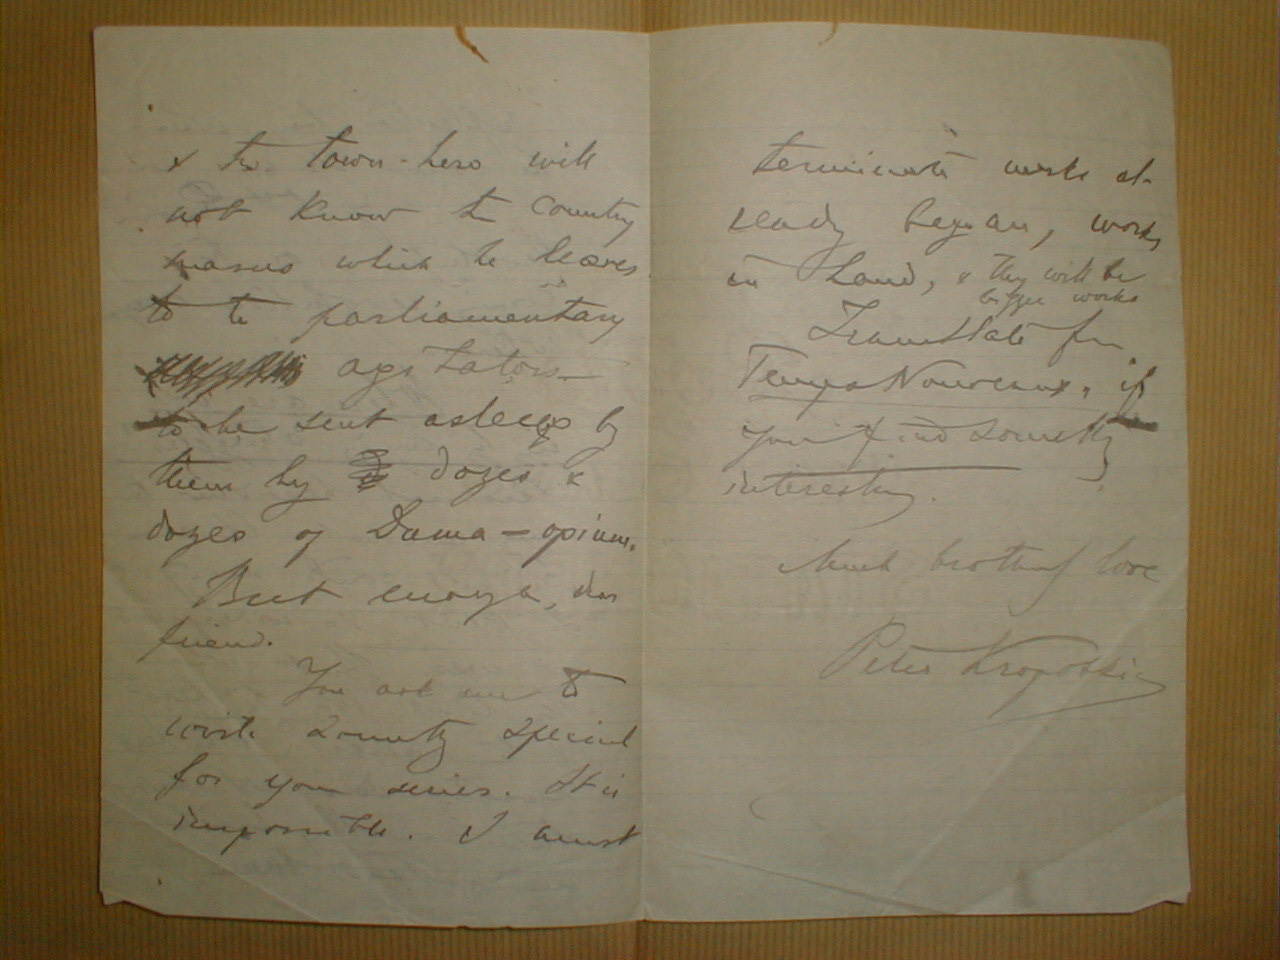 & the town-hero will
not know the country
masses which he leaves
to the parliamentary
agitators—
to be sent asleep by
them by dozes &
dozes of Duma-opium.
But enough, dear
friend.
You ask me to
write something special
for your series. It is
impossible. I must
terminate works al-
ready began, works
in hand, & they will be
bigger works
Translate from
Temps Nouveaux, if
you find something
interesting.
Much brotherly love
Peter Kropotkin